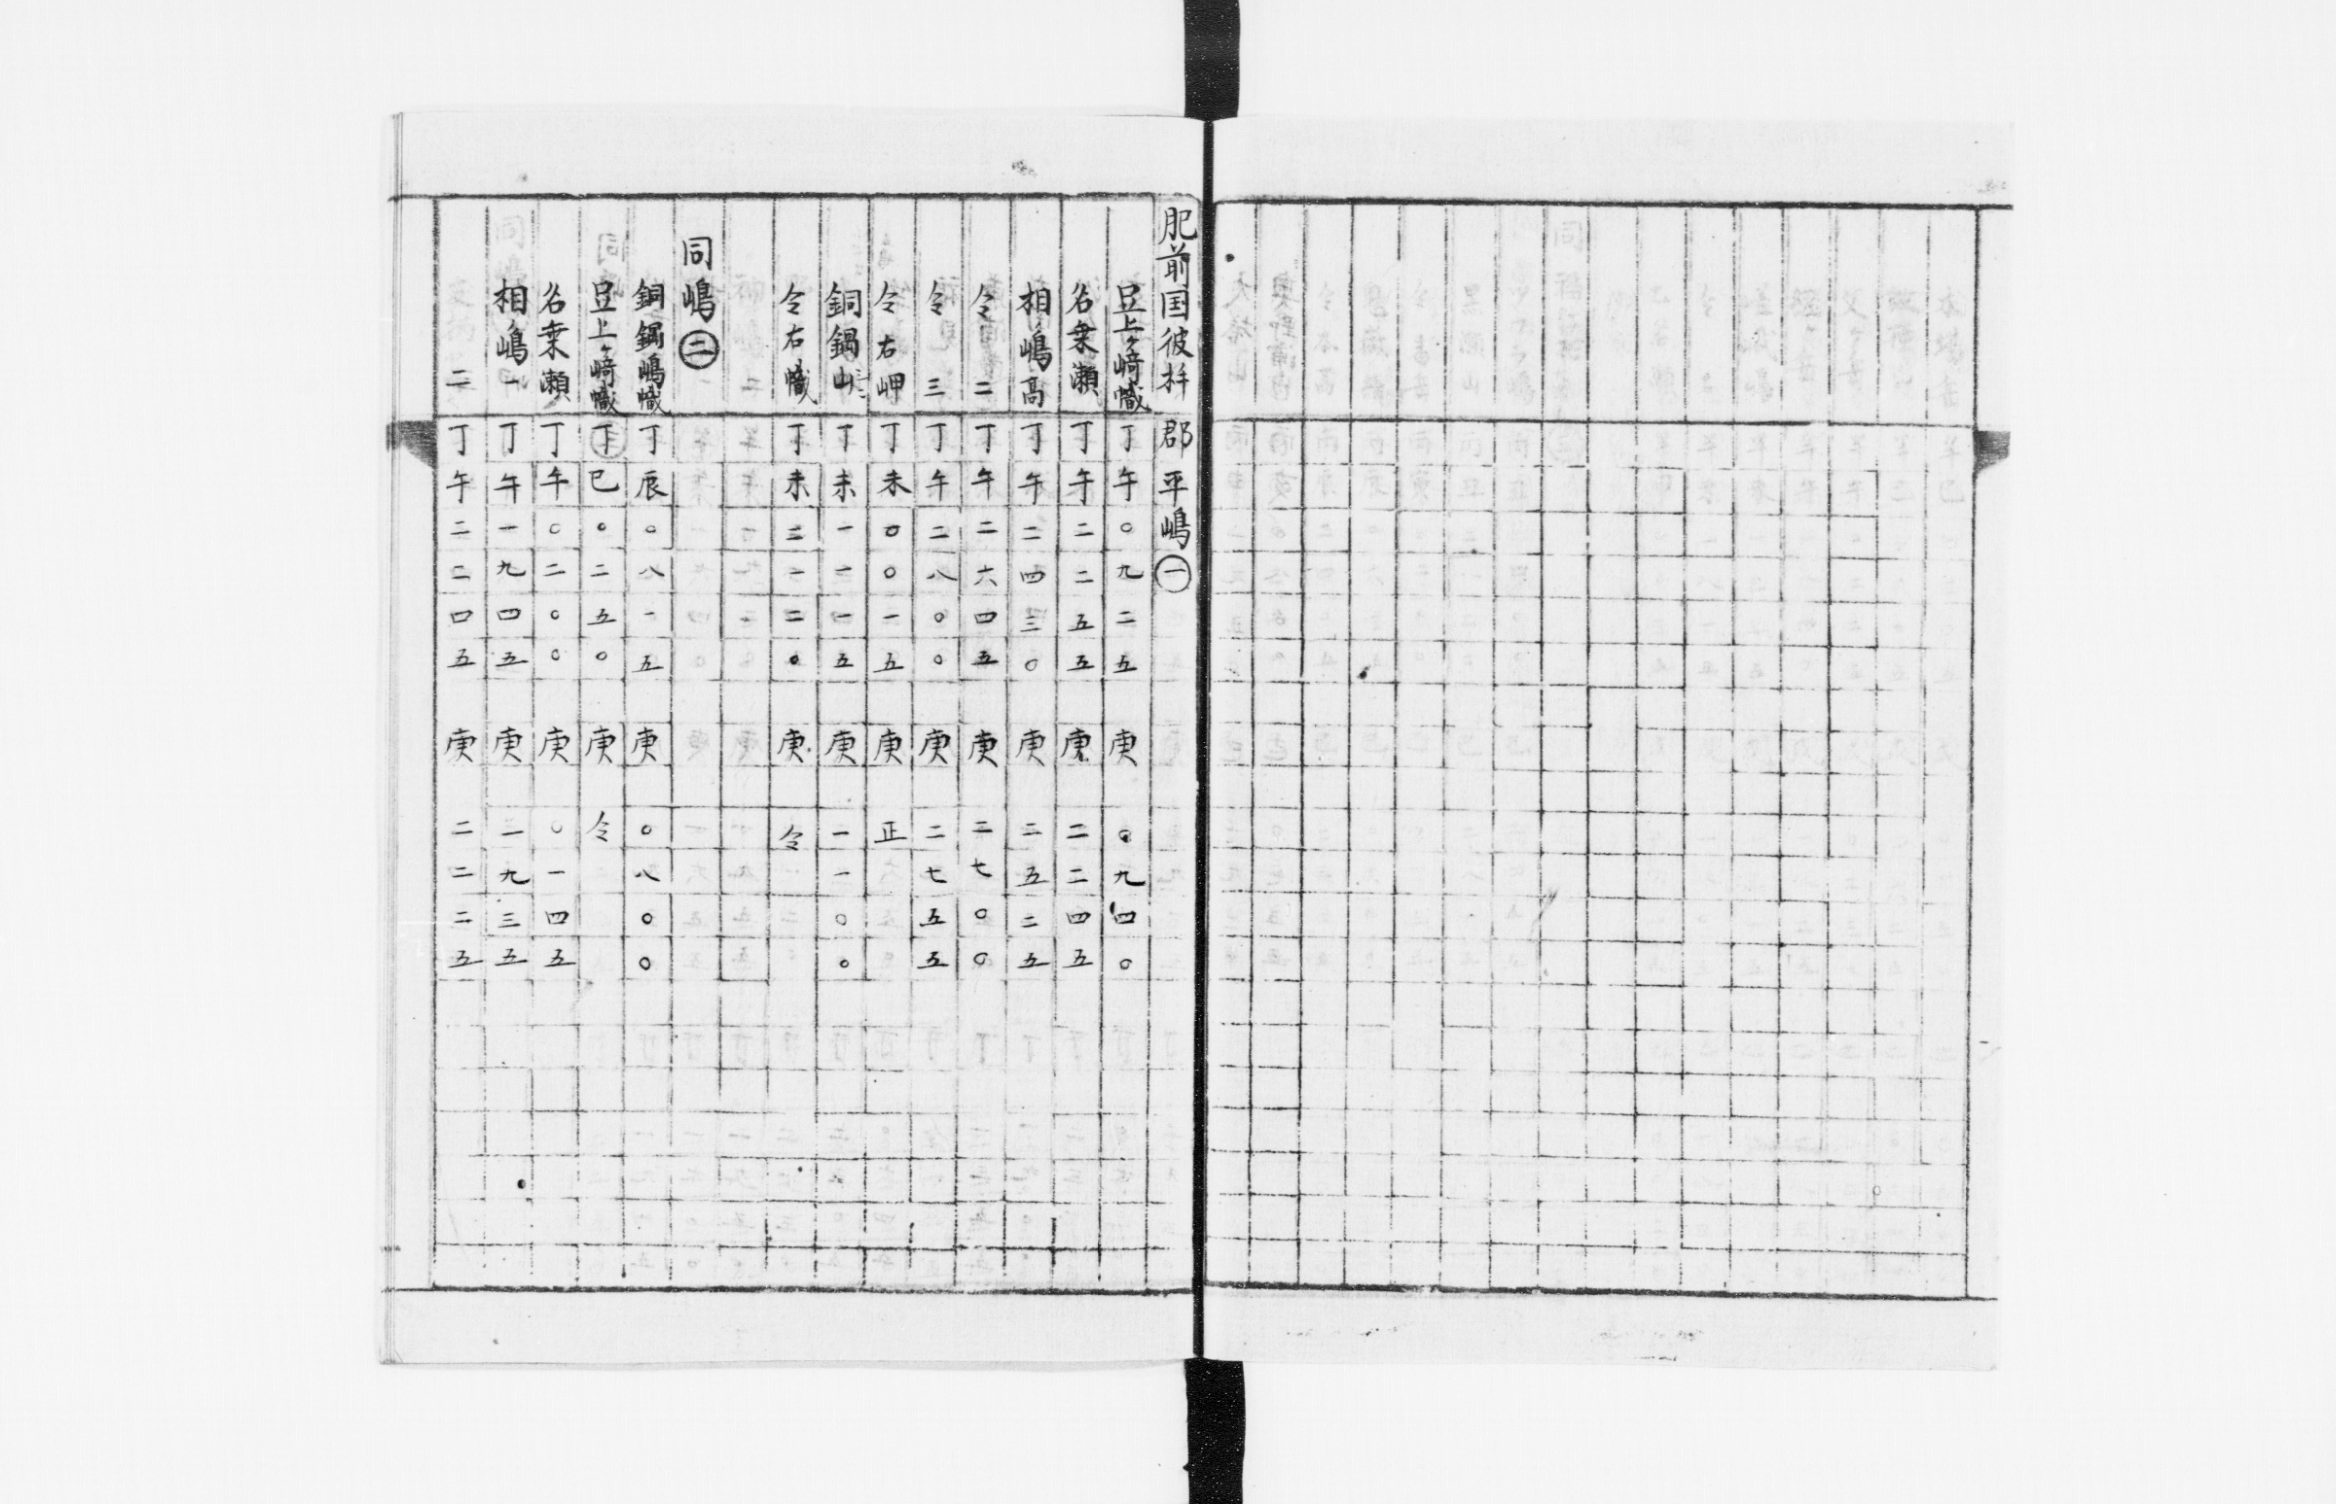 肥前国彼杵郡平嶋㊀
豆上ヶ﨑幟 丁午〇九二五 庚〇九四〇
名乗瀬 丁午二二五五 庚二二四五
相嶋高 丁午二四三〇 庚二五二五
仝 二 丁午二六四五 庚二七〇〇
仝 三 丁午二八〇〇 庚二七五五
仝右岬 丁未〇〇一五 庚正
銅鍋山 丁未一一一五 庚一一〇〇
仝右幟 丁未三一二〇 庚仝
同嶋㊁
銅鍋嶋幟 丁辰〇八一五 庚〇八〇〇
豆上ヶ﨑幟 丁巳〇二五〇 庚仝
名乗瀬 丁午〇二〇〇 庚〇一四五
相嶋一 丁午一九四五 庚一九三五
二 丁午二二四五 庚二二二五